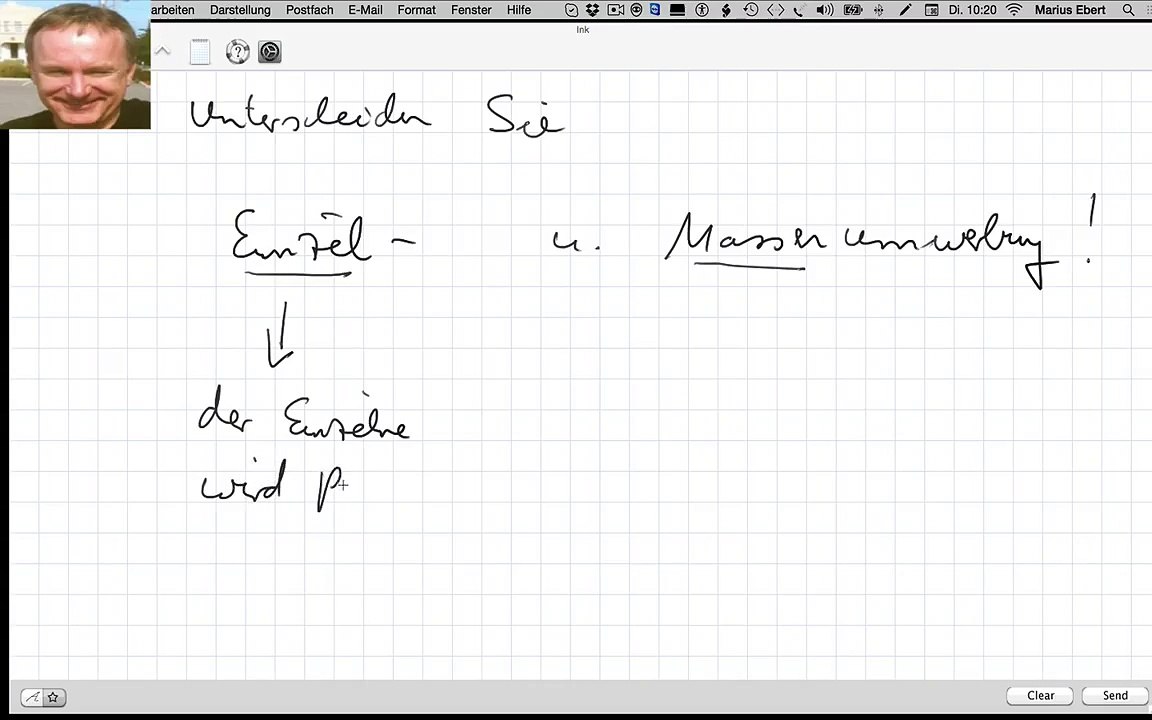 arbeiten Darstellung Postfach E-Mail Format Fenster Hilfe Di. 10:20 Marius Ebert
Ink
Unterscheiden Sie
Einzel- u. Massenumwerbung!
der Einzelne
wird p
Clear Send